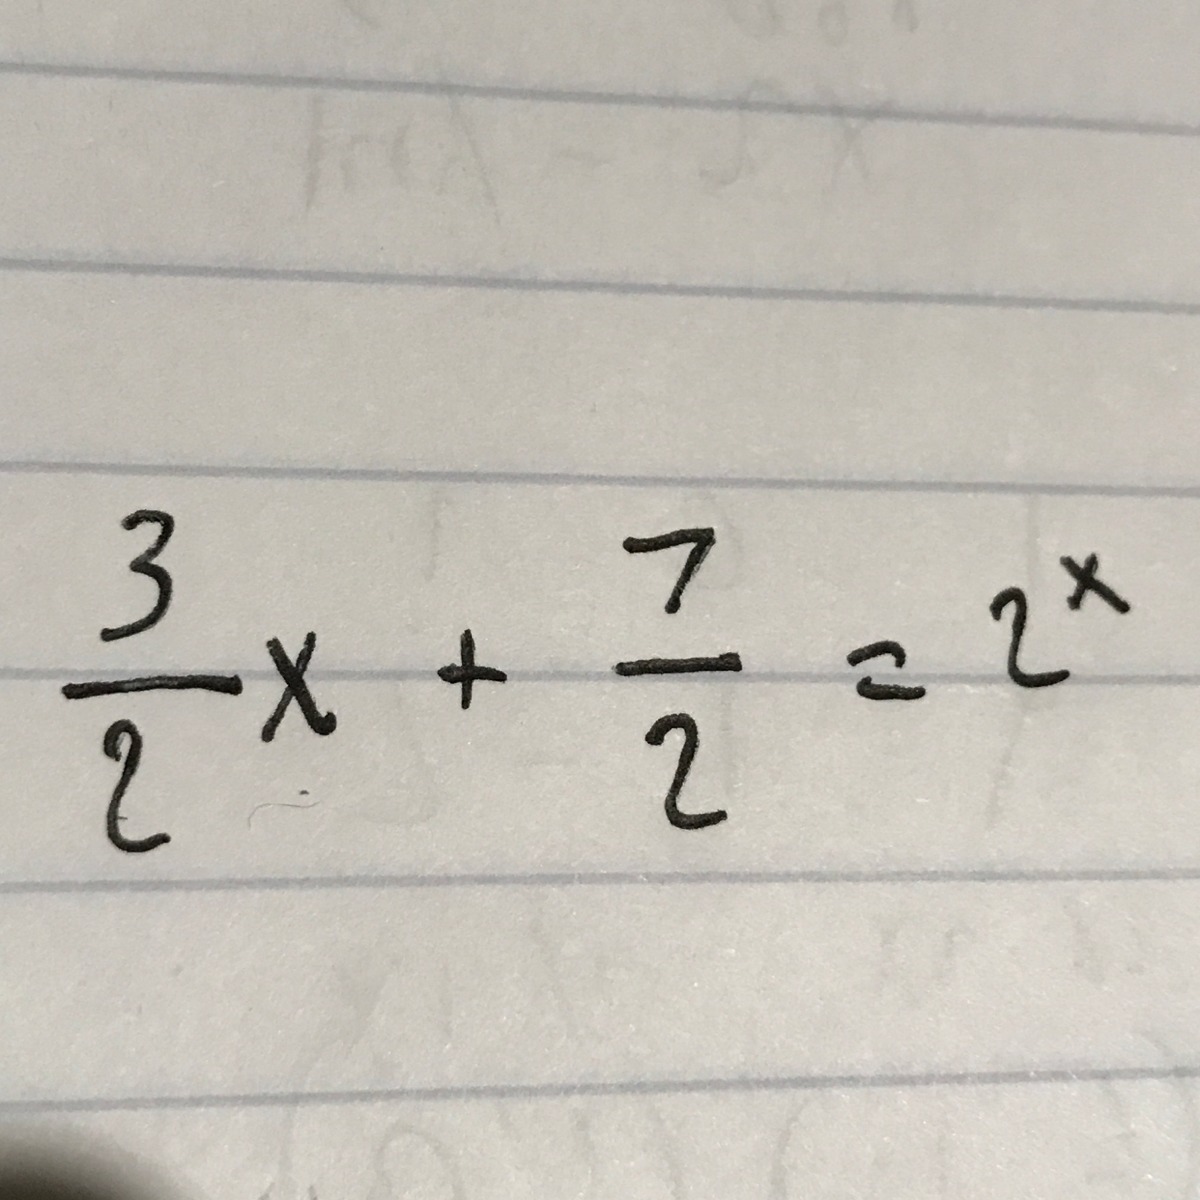 3/2 x + 7/2 = 2^x